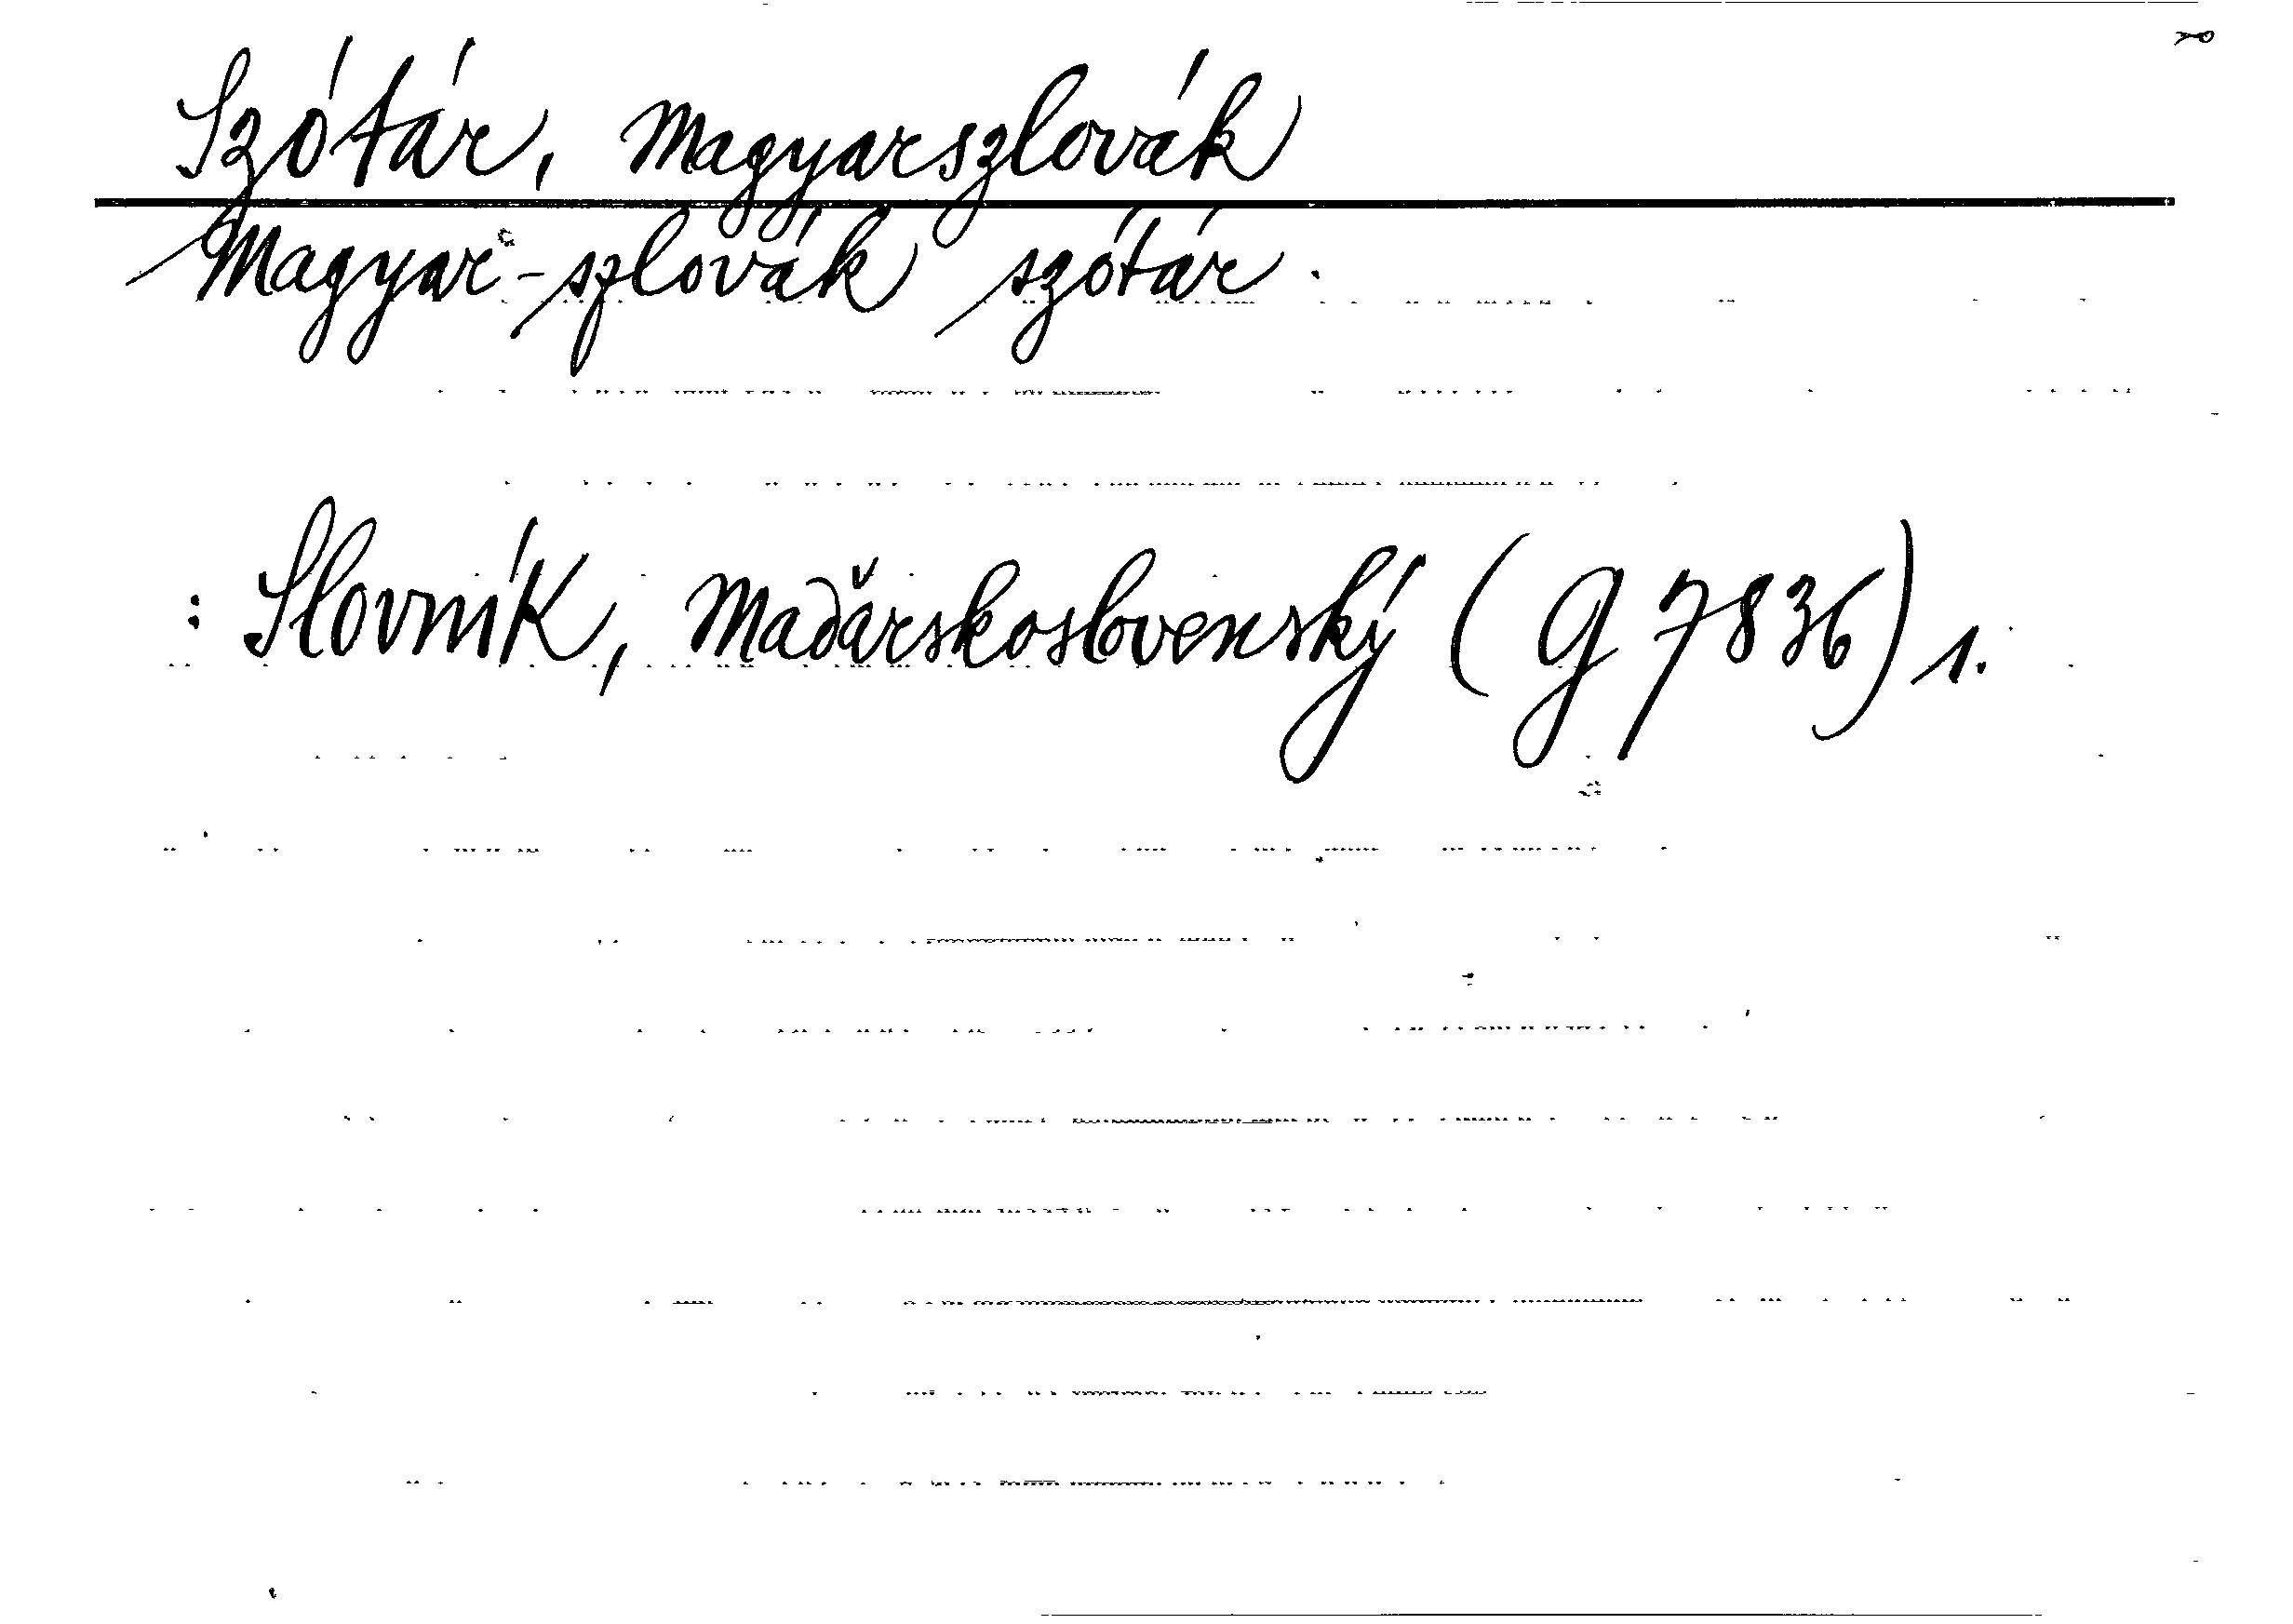 Szótár, Magyarszlovák
Magyar-szlovák szótár.
: Slovník, Maďarskoslovenský (G 7836) 1.